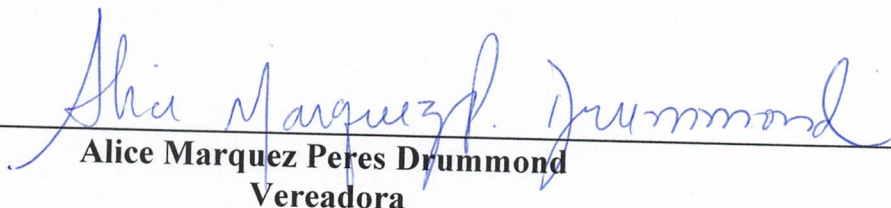 Alice Marquez P. Drummond
Alice Marquez Peres Drummond
Vereadora